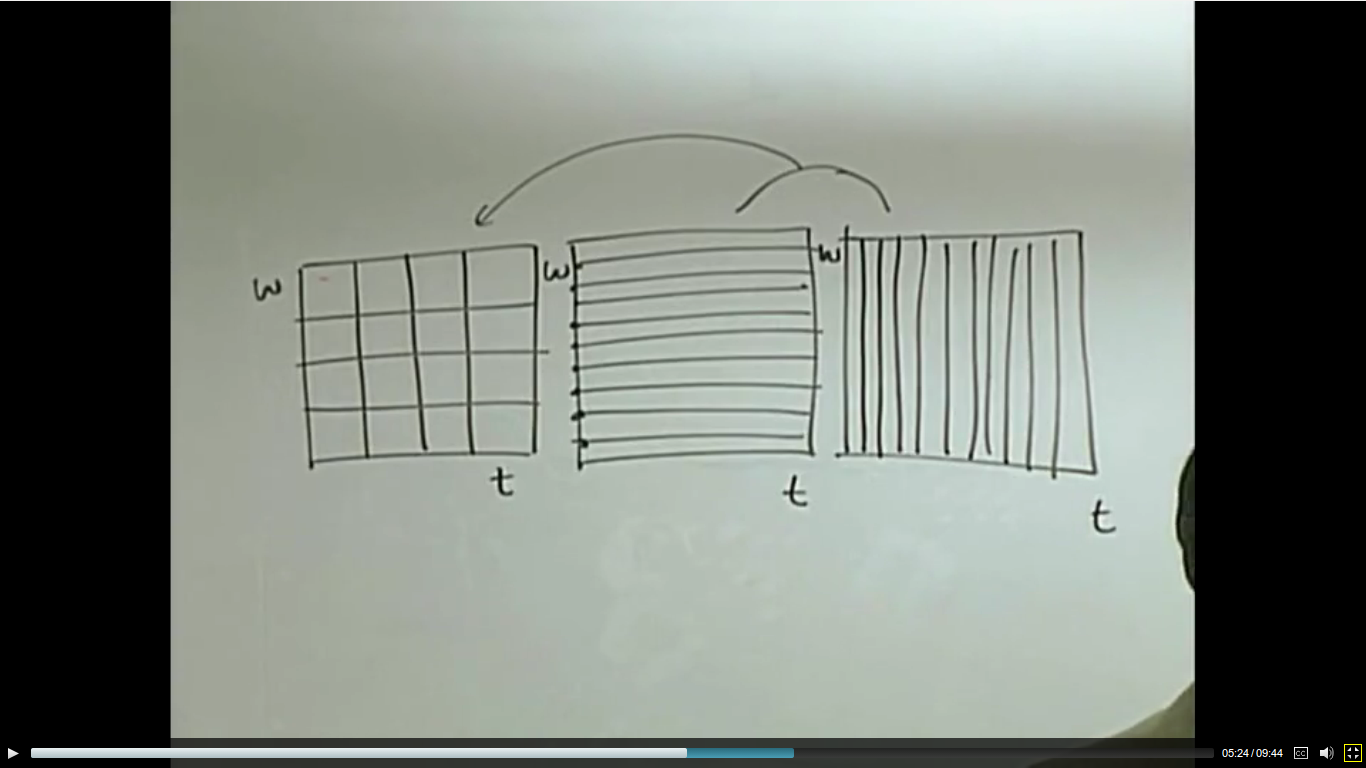 w w w
t t t
05:24 / 09:44 CC